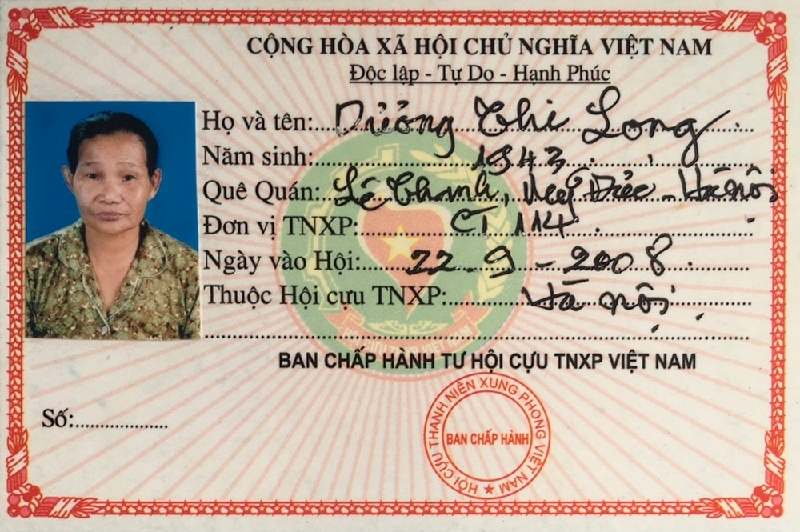 CỘNG HÒA XÃ HỘI CHỦ NGHĨA VIỆT NAM
Độc lập - Tự Do - Hạnh Phúc
Họ và tên: Dưởng Thi Long
Năm sinh: 1943
Quê Quán: Lê Thanh, Mỹ Đức - Hà nội
Đơn vị TNXP: CT 114
Ngày vào Hội: 22-9-2008
Thuộc Hội cựu TNXP: Hà nội
BAN CHẤP HÀNH TƯ HỘI CỰU TNXP VIỆT NAM
Số:
HỘI CỰU THANH NIÊN XUNG PHONG VIỆT NAM
BAN CHẤP HÀNH